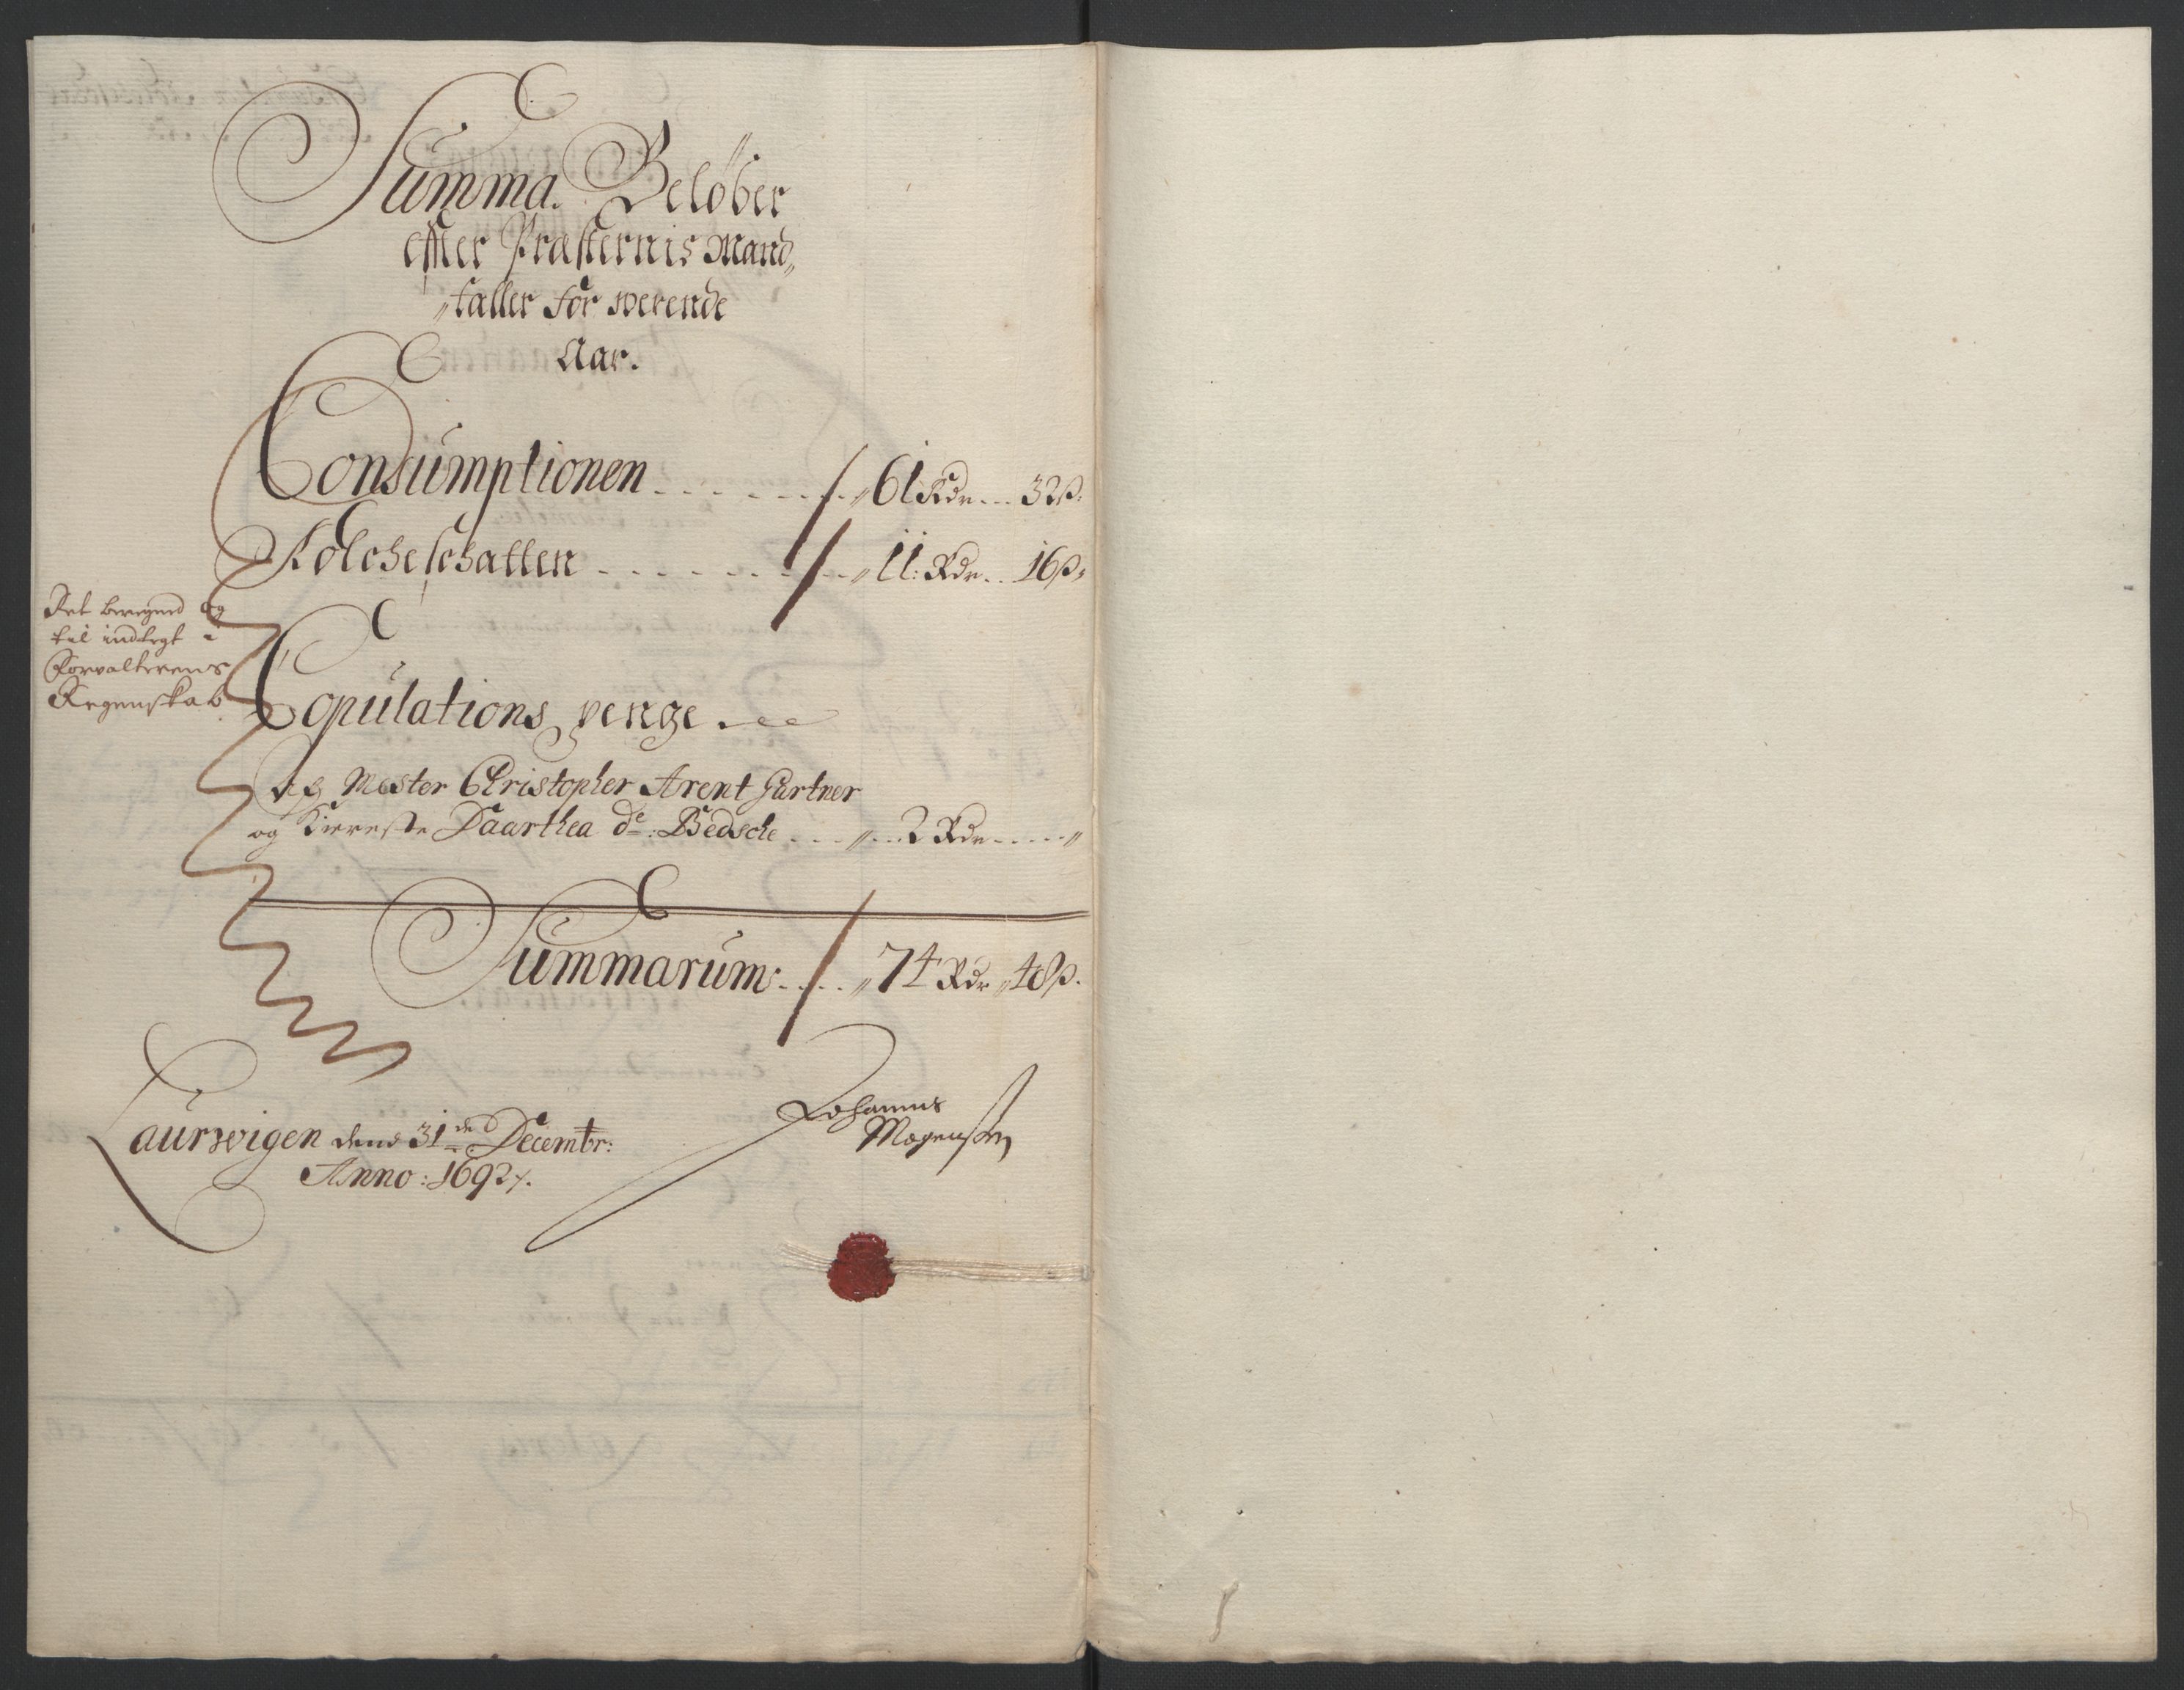 Summa. Beløber
effter Præsternis Mand,,
,,taller for werende
Aar.
Consumptionen . . . . . . . ,,61 Rdr. . . 32 ß.
Folcheschatten . . . . . . . ,,11: Rdr. . 16 ß.
Ret beregned og
til indlegt i
Forvalterens
Regenskab
Copulations penge.
Af Mester Christopher Arent Gartner
og Kiereste Daarthea de: Bedsche . . . ,, . . 2 Rdr . . . . ,,
Summarum: . . . ,,74 Rdr ,,48 ß.
Laurwigen dend 31de Decembr:
Anno: 1692.
Johannis
Mogensen